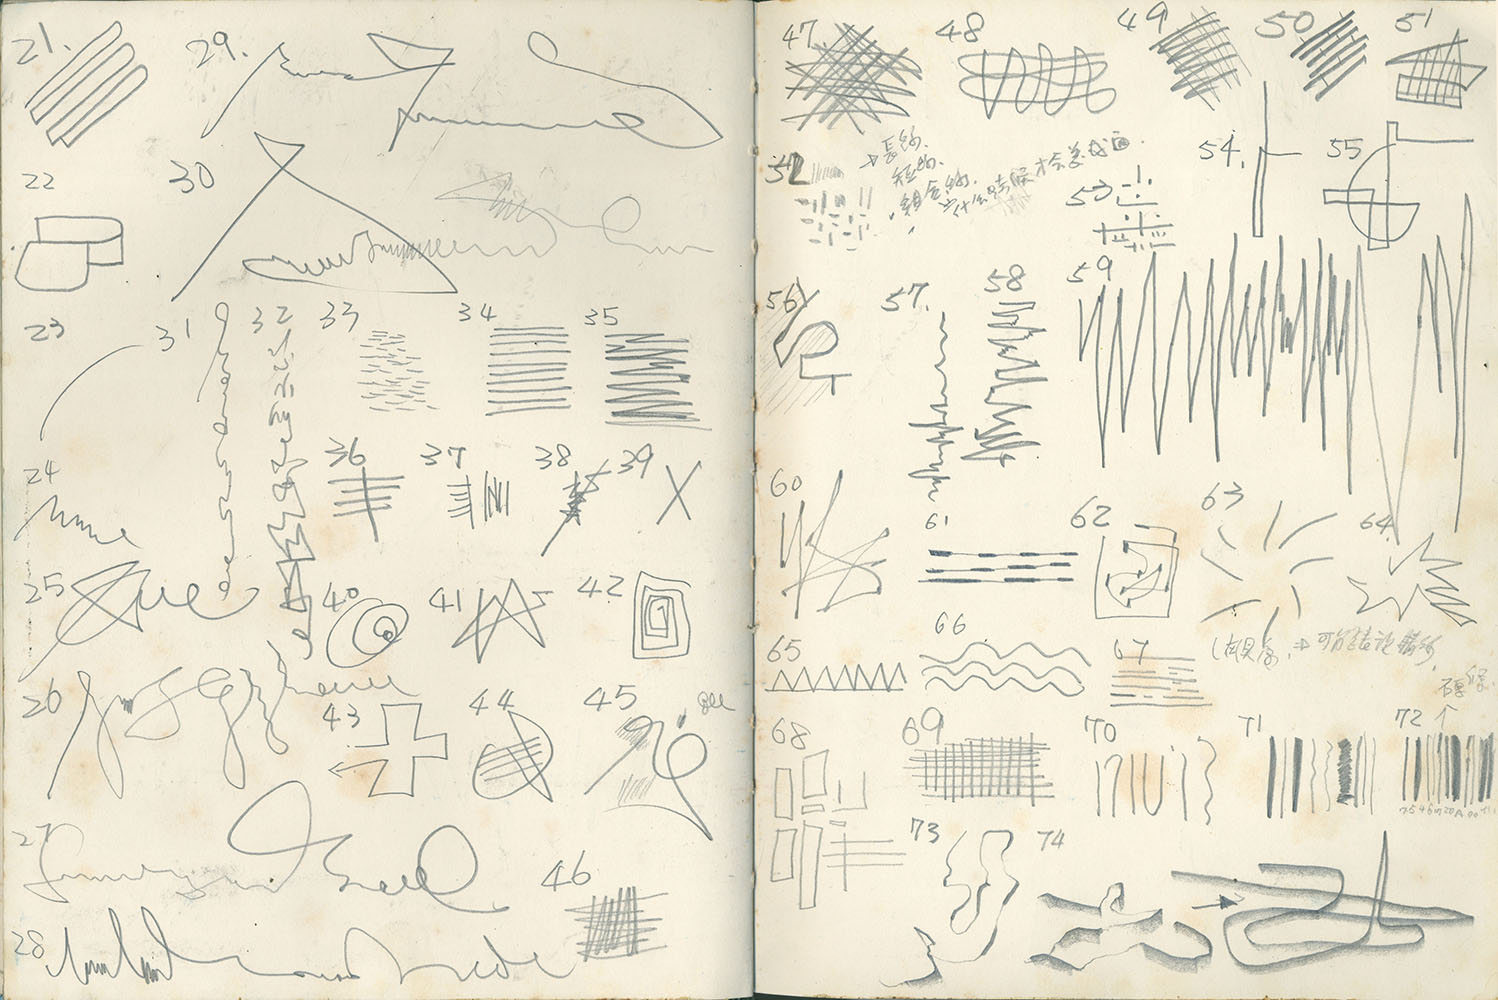 21.
29.
22
30
23
31
32
33
34
35
24
36
37
38
39
25
40
41
42
26
43
44
45
27
46
28
47
48
49
50
51
52
→長的.
短的.
組合的.
53
54.
55
56
57.
58
59
60
61
62
63
64.
65
66
67
68
69
70
71
72
73
74